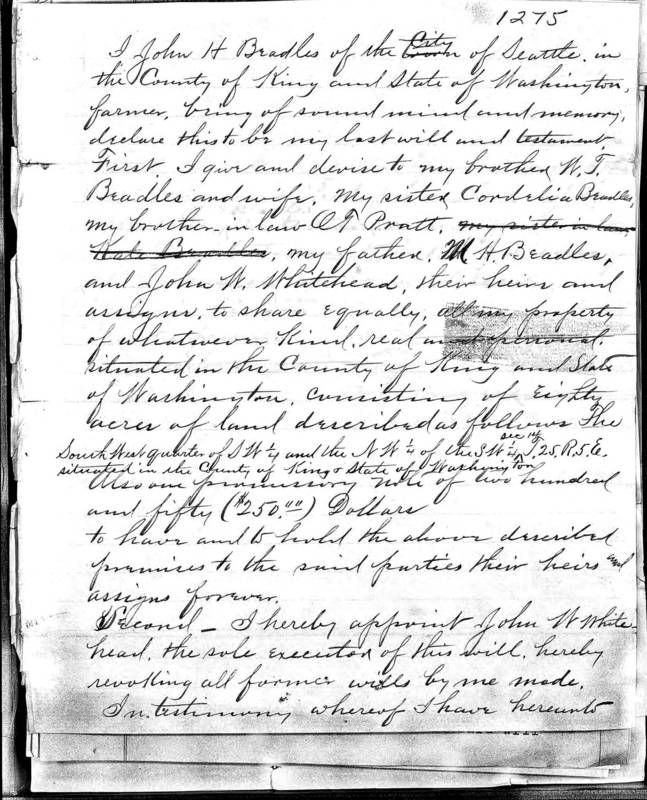 1275
I John H Beadles of the City of Seattle, in
the County of King and State of Washington,
farmer, being of sound mind and memory,
declare this to be my last will and testament.
First. I give and devise to my brother W. T.
Beadles and wife, my sister Cordelia Beadles,
my brother-in-law O T Pratt, my sister in law,
Kate Beadles, my father, M H. Beadles,
and John W. Whitehead, their heirs and
assigns, to share equally, all my property
of whatsoever kind, real and personal,
situated in the County of King and State
of Washington, consisting of Eighty
acres of land described as follows The
South West quarter of S W 1/4 and the N W 1/4 of the S W 1/4 sec 14 T. 25. R. 5. E.
situated in the County of King & State of Washington
Also one promissory note of two hundred
and fifty ($250.00) Dollars
to have and to hold the above described
premises to the said parties their heirs and
assigns forever.
Second – I hereby appoint John W White
head, the sole executor of this will, hereby
revoking all former wills by me made.
In testimony whereof I have hereunto